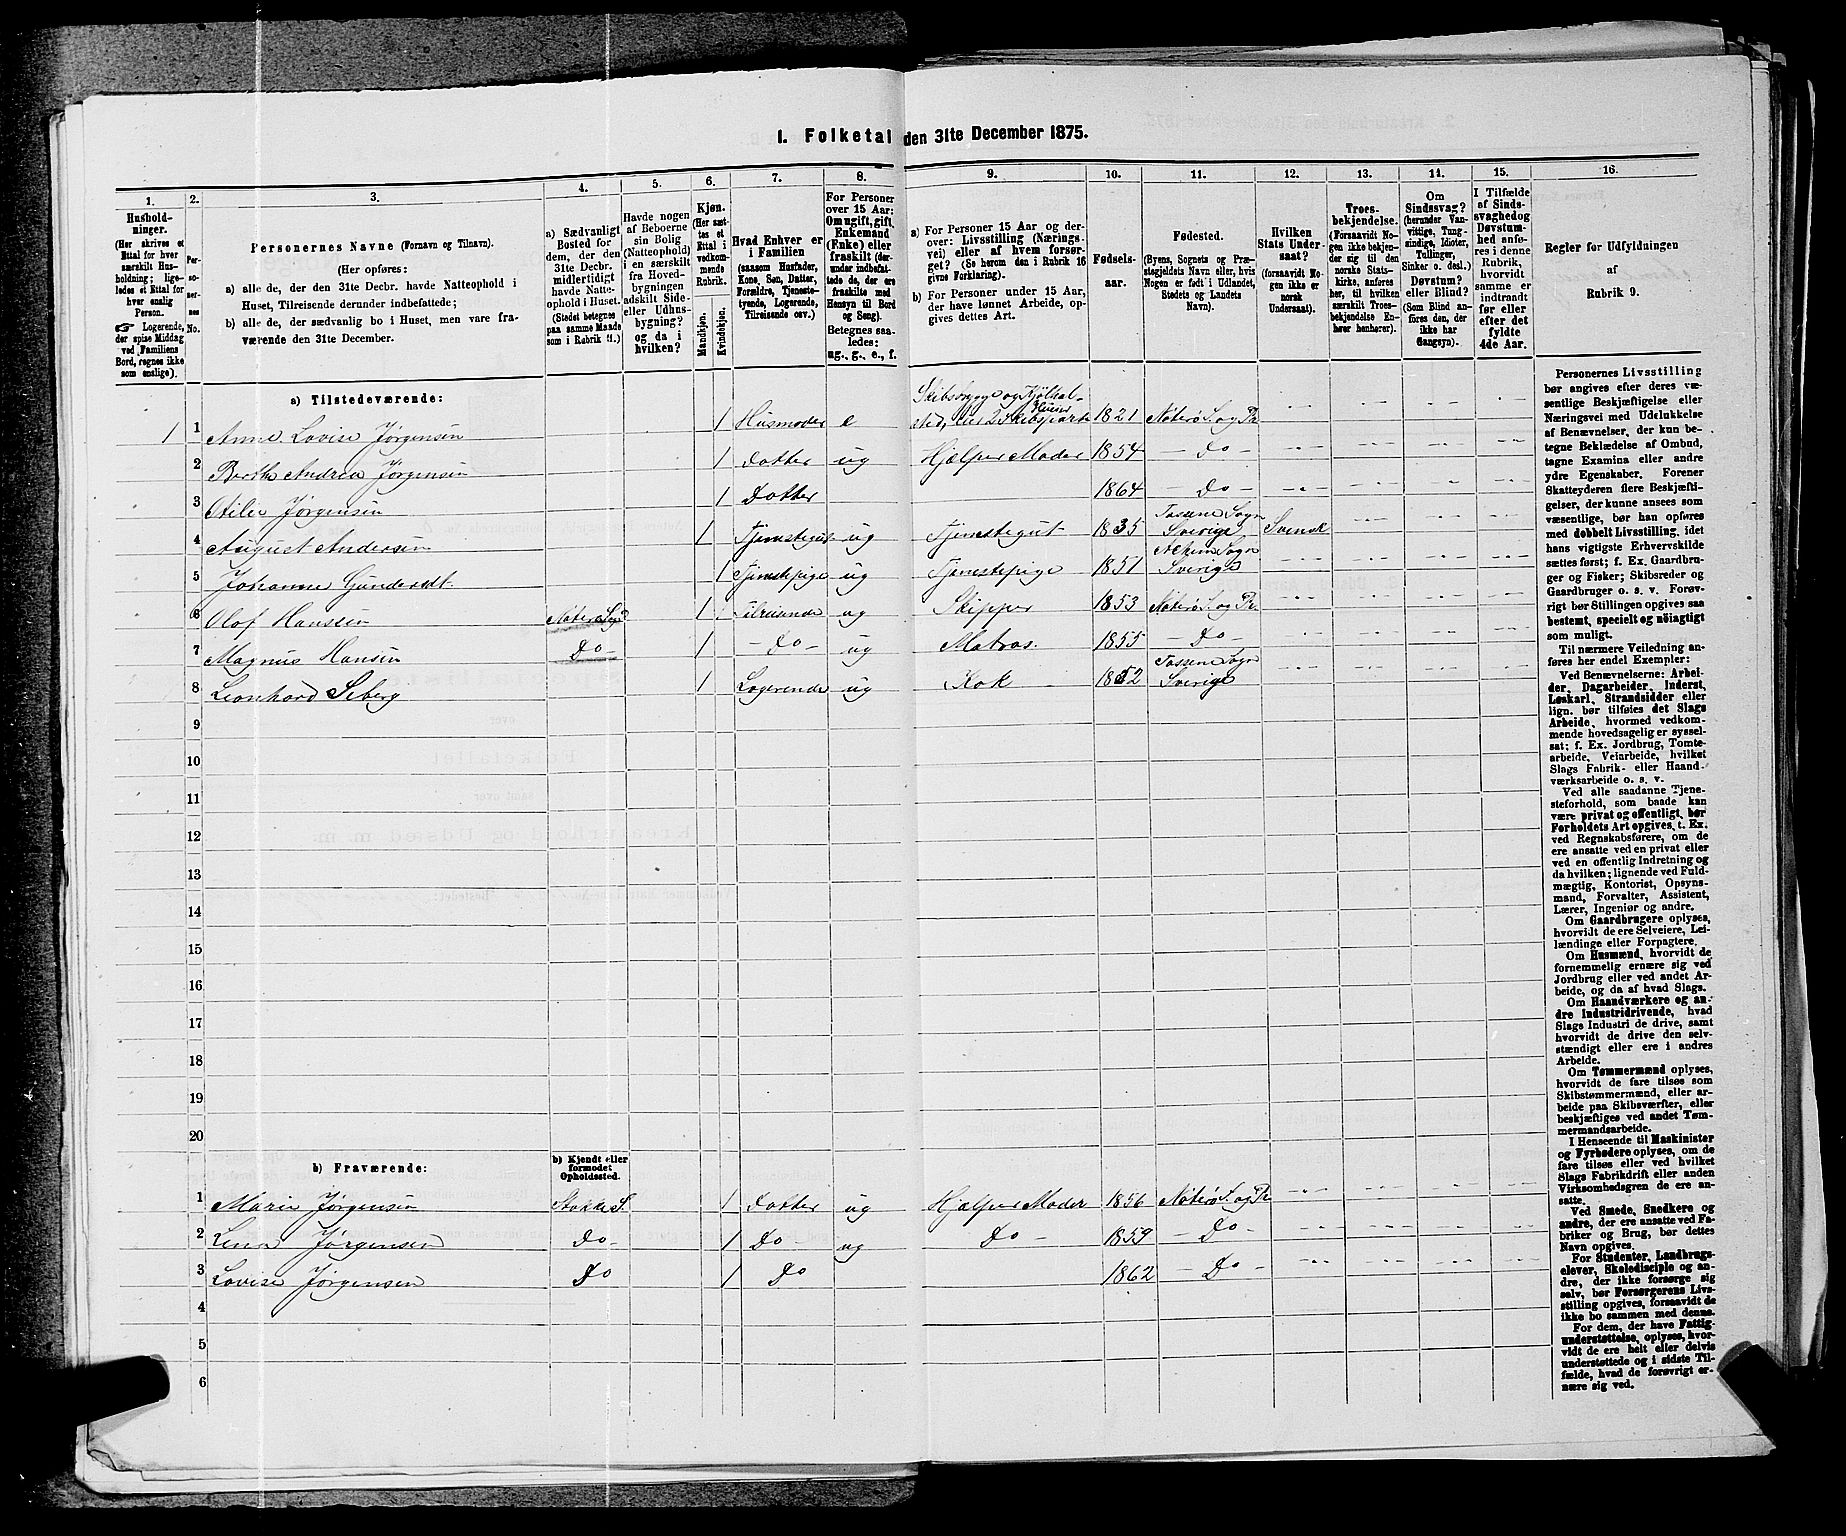 1. Folketal den 31te December 1875.
1. 2. 3. 4. 5. 6. 7. 8. 9. 10. 11. 12. 13. 14. 15. 16.
Hushold-
ninger.
(Her skrives et
Ettal for hver
særskilt Hus-
holdning; lige-
ledes et Ettal for
hver enslig
Person.
☞ Logerende,
der spise Middag
ved Familiens
Bord, regnes ikke
som enslige).
Per-
so-
ner-
nes
No.
Personernes Navne (Fornavn og Tilnavn).
(Her opføres:
a) alle de, der den 31te Decbr. havde Natteophold i
Huset, Tilreisende derunder indbefattede;
b) alle de, der sædvanlig bo i Huset, men vare fra-
værende den 31te December.
a) Sædvanligt
Bosted for
dem, der den
31te Decbr.
midlertidigt
havde Natte-
ophold i Huset.
(Stedet betegnes
paa samme Maade
som i Rubrik 11.)
Havde nogen
af Beboerne
sin Bolig
(Natteophold)
i en særskilt
fra Hoved-
bygningen
adskilt Side-
eller Udhus-
bygning?
og da i
hvilken?
Kjøn.
(Her sæt-
tes et
Ettal i
vedkom-
mende
Rubrik.
Mandkjøn.
Kvindekjøn.
Hvad Enhver er
i Familien
(saasom Husfader,
Kone, Søn, Datter,
Forældre, Tjeneste-
tyende, Logerende,
Tilreisende osv.)
For Personer
over 15 Aar:
Om ugift, gift,
Enkemand
(Enke) eller
fraskilt (der-
under indbefat-
tede de, der ere
fraskilte med
Hensyn til Bord
og Seng).
Betegnes saa-
ledes:
ug., g., e., f.
a) For Personer 15 Aar og der-
over: Livsstilling (Nærings-
vei) eller af hvem forsør-
get? (Se herom den i Rubrik 16
givne Forklaring).
b) For Personer under 15 Aar,
der have lønnet Arbeide, op-
gives dettes Art.
Fødsels-
aar.
Fødested.
(Byens, Sognets og Præ-
stegjeldets Navn eller, hvis
Nogen er født i Udlandet,
Stedets og Landets
Navn).
Hvilken
Stats Under-
saat?
(forsaavidt No-
gen ikke er
norsk
Undersaat).
Troes-
bekjendelse.
(Forsaavidt No-
gen ikke bekjen-
der sig til den
norske Stats-
kirke, anføres
her, til hvilken
særskilt Troes-
bekjendelse En-
hver henhører).
Om
Sindssvag?
(herunder Van-
vittige, Tung-
sindige, Idioter,
Sinker o. desl.)
Døvstum?
eller Blind?
(Som Blind an-
føres den, der
ikke har
Gangsyn).
I Tilfælde
af Sinds-
svaghed og
Døvstum-
hed anfø-
res i denne
Rubrik,
hvorvidt
samme er
indtraadt
før eller
efter det
fyldte
4de Aar.
Regler for Udfyldningen
af
Rubrik 9.
a) Tilstedeværende:
Skibsbygge og Kjøltal-
1 1 Anne Lovise Jørgensen 1 Husmoder e sted, eier 2 Skibsparte 1821 Nøterø S. og Pr.
2 Berthe Andrea Jørgensen 1 Datter ug Hjælper Moder 1854 - Do -
3 Jørgensen 1 Datter 1864 - Do -
4 August Andersen 1 Tjenestegut ug Tjenestegut 1835 Tossene Sogn Sverige Svensk
5 Johanne Gundersdt. 1 Tjenestepige ug Tjenestepige 1851 Sogn Sverige
6 Olof Hanssen Nøterø Sogn 1 Tilreisende ug Skipper 1853 Nøterø S. og Pr.
7 Magnus Hansen Do - 1 - Do - ug Matros. 1855 - Do -
8 Leonhard Seberg 1 Logerende ug Kok 1852 Tossene Sogn Sverige
9
10
11
12
13
14
15
16
17
18
19
20
b) Fraværende:
b) Kjendt eller
formodet
Opholdssted.
1 Marie Jørgensen Stokke S. 1 Datter ug Hjælper Moder 1856 Nøterø S. og Pr
2 Lina Jørgensen Do - 1 Do - ug Do - 1859 - Do -
3 Lovise Jørgensen Do 1 Do 1862 - Do -
4
5
6
Personernes Livsstilling
bør angives efter deres væ-
sentlige Beskjæftigelse eller
Næringsvei med Udelukkelse
af Benævnelser, der kun be-
tegne Beklædelse af Ombud,
tagne Examina eller andre
ydre Egenskaber. Forener
Skatteyderen flere Beskjæfti-
gelser, der kunne ansees som
væsentlige, bør han opføres
med dobbelt Livsstilling, idet
hans vigtigste Erhvervskilde
sættes først; f. Ex. Gaardbru-
ger og Fisker; Skibsreder og
Gaardbruger o. s. v. Forøv-
rigt bør Stillingen opgives saa
bestemt, specielt og nøiagtigt
som muligt.
Til nærmere Veiledning an-
føres her endel Exempler:
Ved Benævnelserne: Arbei-
der, Dagarbeider, Inderst,
Løskarl, Strandsidder eller
lign. bør tilføies det Slags
Arbeide, hvormed vedkom-
mende hovedsagelig er syssel-
sat; f. Ex. Jordbrug, Tomte-
arbeide, Veiarbeide, hvilket
Slags Fabrik- eller Haand-
værksarbeide o. s. v.
Ved alle saadanne Tjene-
steforhold, som baade kan
være privat og offentligt, bør
Forholdets Art opgives, t. Ex.
ved Regnskabsførere, om de
ere ansatte ved en privat eller
ved en offentlig Indretning og
da hvilken; lignende ved Fuld-
mægtig, Kontorist, Opsyns-
mand, Forvalter, Assistent,
Lærer, Ingeniør og andre.
Om Gaardbrugere oplyses,
hvorvidt de ere Selveiere, Lei-
lændinge eller Forpagtere.
Om Husmænd, hvorvidt de
fornemmelig ernære sig ved
Jordbrug eller ved andet Ar-
beide, og da af hvad Slags.
Om Haandværkere og an-
dre Industridrivende, hvad
Slags Industri de drive, samt
hvorvidt de drive den selv-
stændigt eller ere i andres
Arbeide.
Om Tømmermænd oplyses,
hvorvidt de fare tilsøs som
Skibstømmermænd, eller ar-
beide paa Skibsværfter, eller
beskjæftiges ved andet Tøm-
mermandsarbeide.
I Henseende til Maskinister
og Fyrbødere oplyses, om de
fare tilsøs eller ved hvilket
Slags Fabrikdrift eller anden
Virksomhedsgren de ere an-
satte.
Ved Smede, Snedkere og
andre, der ere ansatte ved Fa-
briker og Brug, bør dettes
Navn opgives.
For Studenter, Landbrugs-
elever, Skoledisciple og an-
dre, der ikke forsørge sig
selv, bør Forsørgerens Livs-
stilling opgives, forsaavidt de
ikke bo sammen med denne.
For dem, der have Fattig-
understøttelse, oplyses, hvor-
vidt de ere helt eller delvis
understøttede og i sidste Til-
fælde, hvad de forøvrigt er-
nære sig ved.